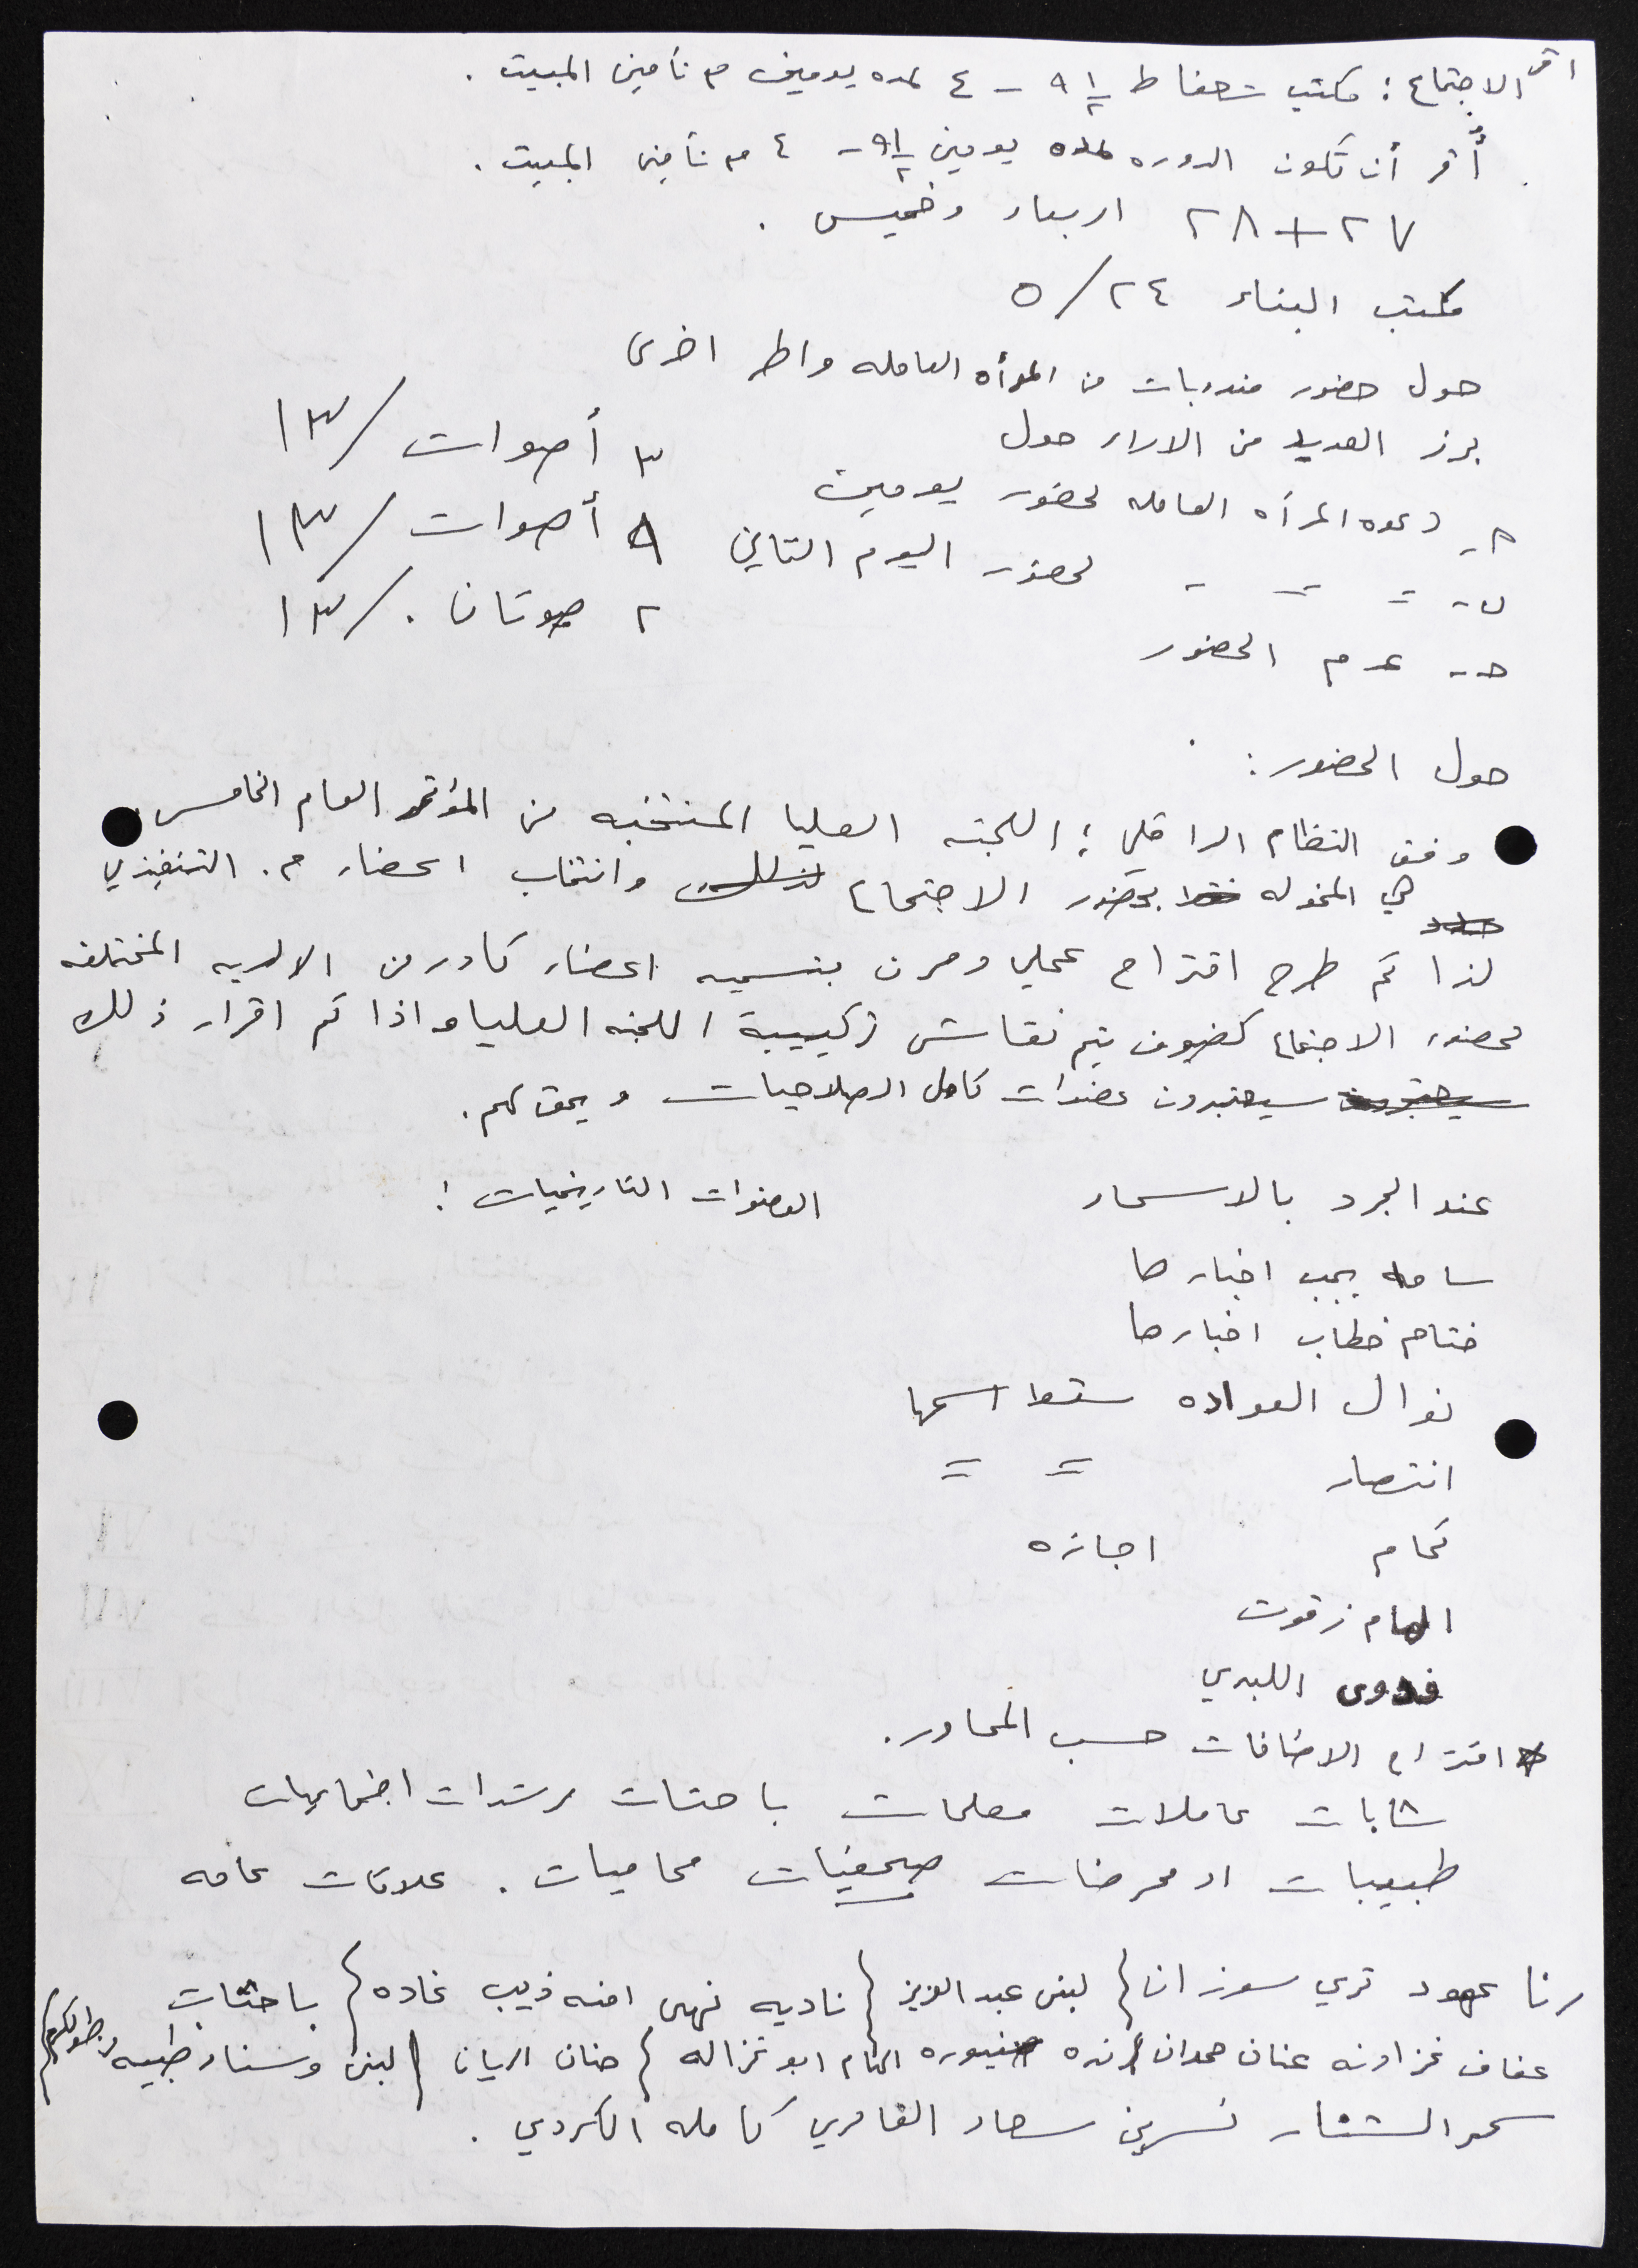 اقر الاجتماع : مكتب شعفاط ٩ ١/٢ - ٤ لمده يومين مع تأمين المبيت .
أُقر أن تكون الدوره لمده يومين ٩ ١/٢ - ٤ مع تأمين المبيت .
٢٧ + ٢٨ اربعاء وخميس .
مكتب البناء ٢٤/٥
حول حضور مندوبات من المرأه العامله واطر اخرى
برز العديد من الاراء حول
أ- دعوه المرأه العامله لحضور يومين ٣ أصوات /١٣
ب- = = - لحضور اليوم الثاني ٨ أصوات /١٣
ج- عدم الحضور ٢ صوتان . /١٣
حول الحضور :
وفق النظام الداخلي : اللجنه العليا المنتخبه من المؤتمر العام الخامس
هي المخوله فقط بحضور الاجتماع لذلك وانتخاب اعضاء م. التنفيذي
لذا تم طرح اقتراح عملي ومرن بتسميه اعضاء كادر من الالويه المختلفه
لحضور الاجتماع كضيوف يتم نقاش تركيبة اللجنه العليا واذا تم اقرار ذلك
سيعتبرون سيعتبرون عضوات كامل الصلاحيات ويحق لهم .
عند الجرد بالاسماء العضوات التاريخيات :
ساميه يجب اخبارها
ختام خطاب اخبارها
نوال العواده سقط اسمها
انتصار = =
كمام اجازه
الهام زقوت
فدوى اللبدي
* اقتراح الاضافات حسب المحاور .
شابات عاملات معلمات باحثات مرشدات اجتماعيات
طبيبات او ممرضات صحفيات محاميات . علاقات عامه
رنا عهود تري سوزان } لبنى عبد العزيز } ناديه نهى امنه ذيب غاده } باحثات
عفاف غزاونه عنان حمدان } رنده سنيوره الهام ابو غزاله } حنان الريان } لبنى وسناء طيبه وطولكرم }
سمر الششتار نسرين سعاد القادري كامله الكردي .